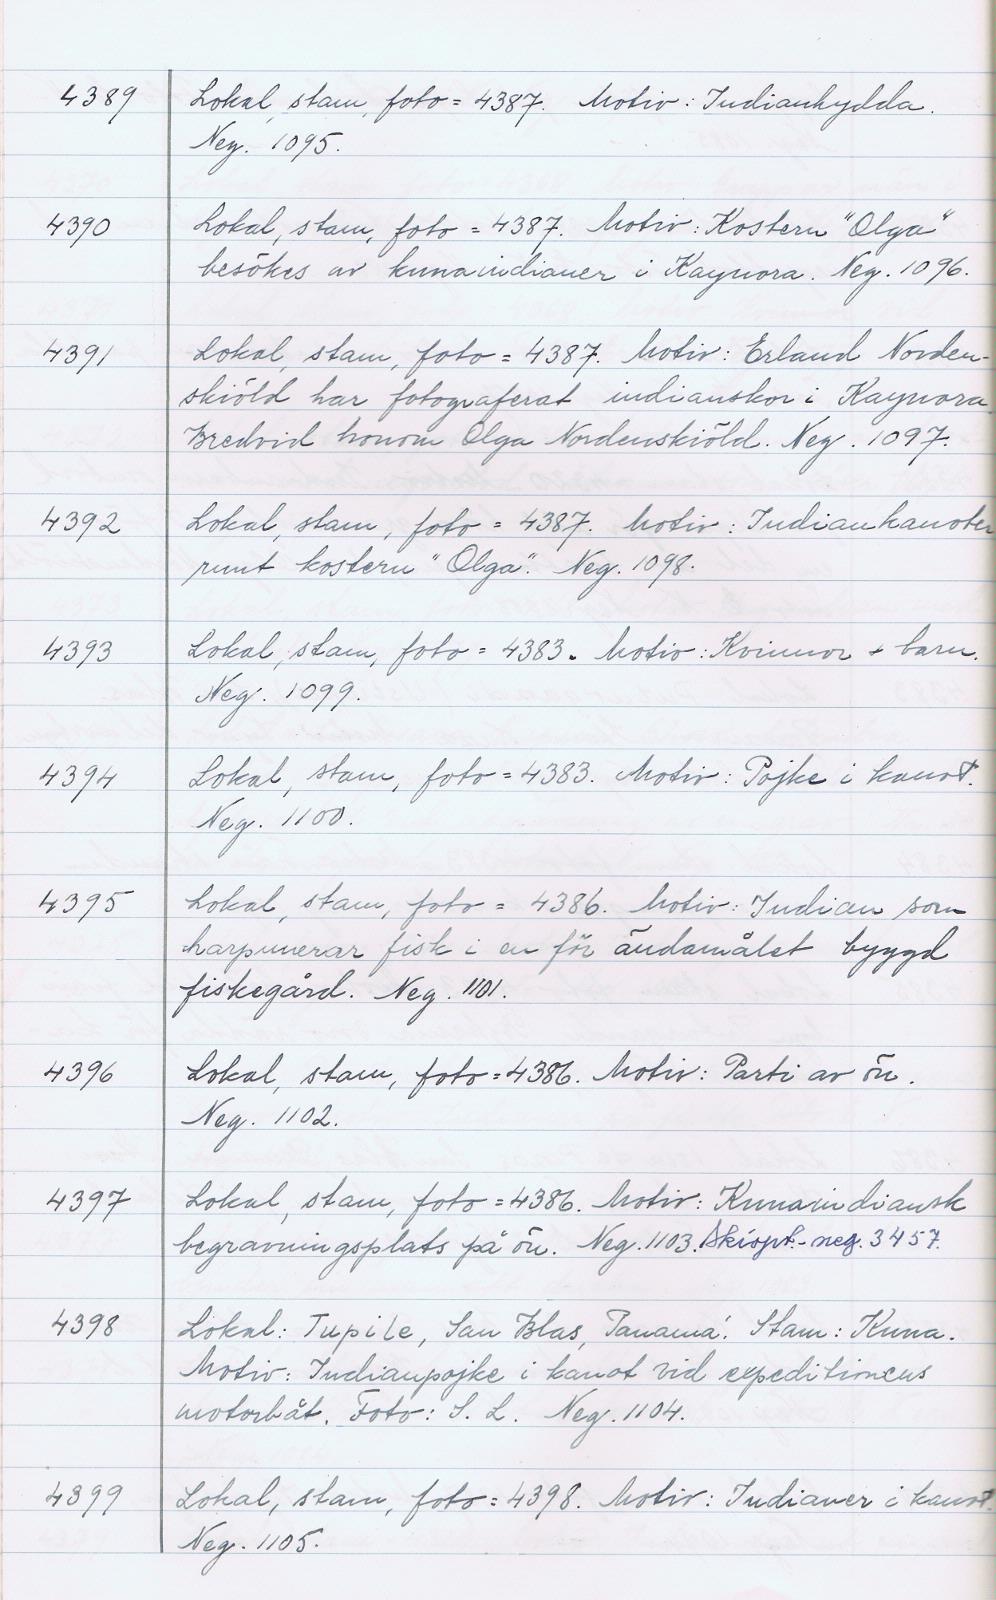 4389 Lokal, stam, foto = 4387. Motiv: Indianhydda.
Neg. 1095.
4390 Lokal, stam, foto = 4387. Motiv: Kostern "Olga"
besökes av kunaindianer i Kaynora. Neg. 1096.
4391 Lokal, stam, foto = 4387. Motiv: Erland Norden-
skiöld har fotograferat indianskor i Kaynora.
Bredvid honom Olga Nordenskiöld. Neg. 1097.
4392 Lokal, stam, foto = 4387. Motiv: Indiankanoter
runt kostern "Olga". Neg. 1098.
4393 Lokal, stam, foto = 4383. Motiv: Kvinnor + barn.
Neg. 1099.
4394 Lokal, stam, foto = 4383. Motiv: Pojke i kanot.
Neg. 1100.
4395 Lokal, stam, foto = 4386. Motiv: Indian som
harpunerar fisk i en för ändamålet byggd
fiskegård. Neg. 1101.
4396 Lokal, stam, foto = 4386. Motiv: Parti av ön.
Neg. 1102.
4397 Lokal, stam, foto = 4386. Motiv: Kunaindiansk
begravningsplats på ön. Neg. 1103. Skiopt.-neg. 3457.
4398 Lokal: Tupile, San Blas, Panamá. Stam: Kuna.
Motiv: Indianpojke i kanot vid expeditionens
motorbåt. Foto: S. L. Neg. 1104.
4399 Lokal, stam, foto = 4398. Motiv: Indianer i kanot.
Neg. 1105.